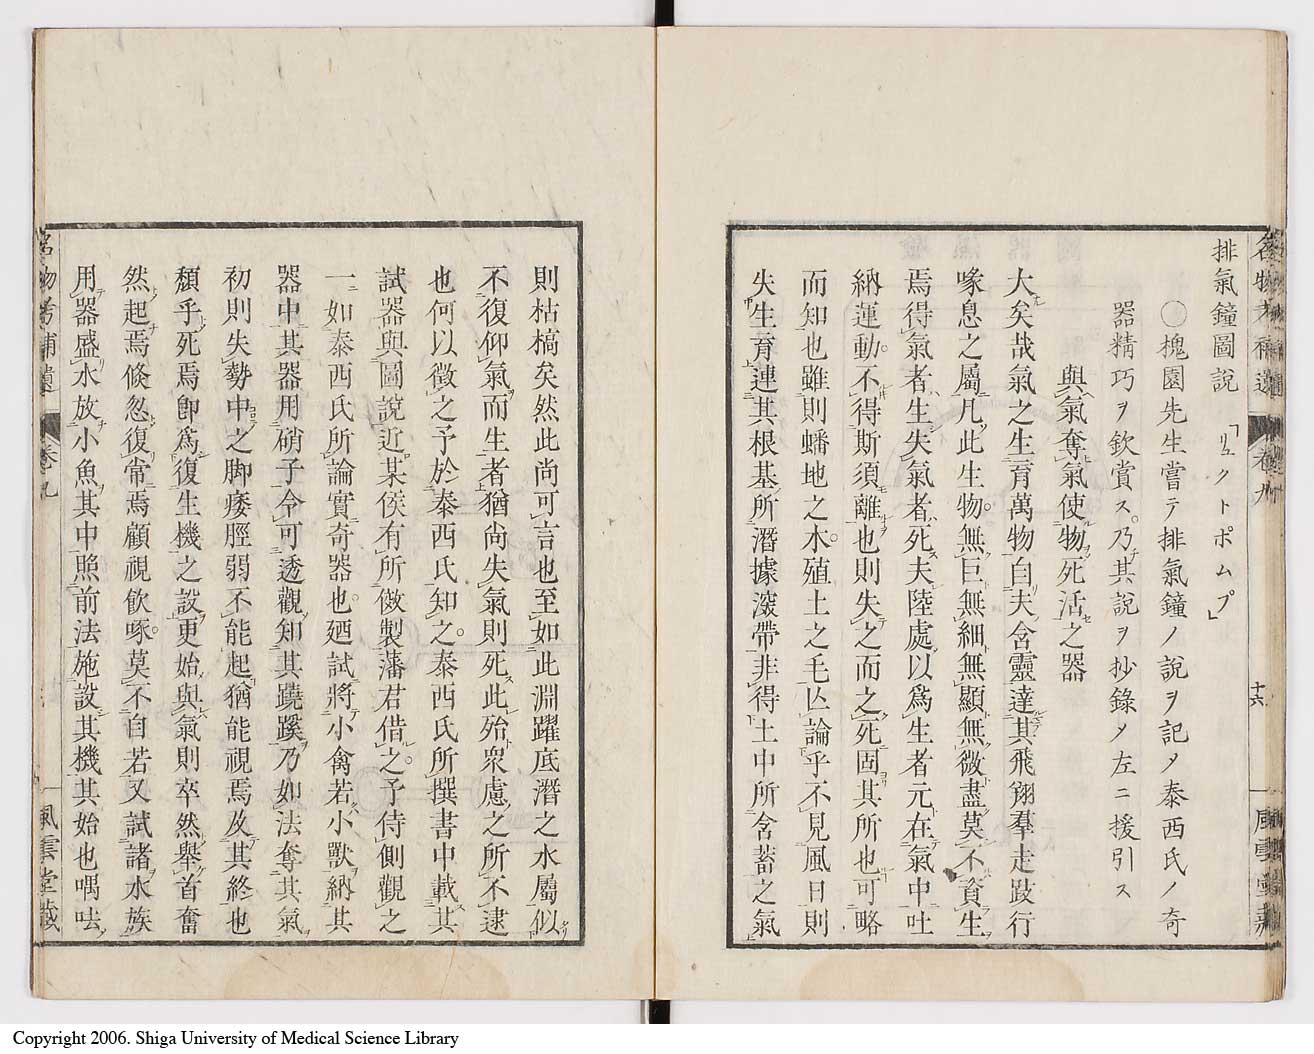 名物考補遺 卷九 十六 風雲堂藏
排氣鐘圖說「リュクトポムプ」
〇槐園先生嘗テ排氣鐘ノ說ヲ記メ泰西氏ノ奇
器精巧ヲ欽賞ス。乃其說ヲ抄錄メ左ニ援引ス
與氣奪氣使物死活之器
大矣哉氣之生育萬物自夫含靈達其飛翔羣走跂行
喙息之屬凡此生物。無巨無細無顯無微盡莫不資生
焉得氣者生失氣者死夫陸處以爲生者元在氣中吐
納運動。不得斯須離也則失之而之死固其所也可略
而知也雖則蟠地之木。殖土之毛亾論乎不見風日則
失生育連其根基所潛據深帶非得土中所含蓄之氣
則枯槁矣然此尚可言也至如此淵躍底潛之水屬似
不復仰氣而生者猶尚失氣則死此殆衆慮之所不逮
也何以徵之予於泰西氏知之。泰西氏所撰書中載其
試器與圖說近某侯有所倣製藩君借之。予侍側觀之
一如泰西氏所論實奇器也。廼試將小禽若小獸納其
器中其器用硝子令可透觀知其蹺蹊乃如法奪其氣
初則失勢中之脚痿脛弱不能起猶能視焉及其終也
頹乎死焉卽爲復生機之設更始與氣則卒然舉首奮
然起焉倏忽復常焉顧視飮啄。莫不自若又試諸水族
用器盛水放小魚其中照前法施設其機其始也喁呿
名物考補遺 卷九 風雲堂藏
Copyright 2006. Shiga University of Medical Science Library